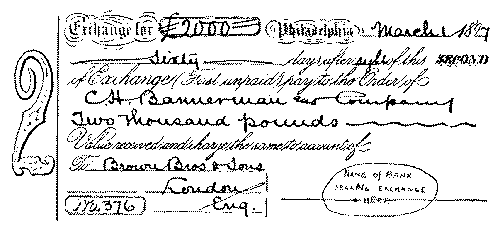 Exchange for £2000 Philadelphia, March 1 1897
Sixty days after sight of this SECOND
of Exchange (First unpaid) pay to the Order of
C.H. Bannerman and Company
Two thousand pounds
Value received and charge the same to account of
To Brown Bros & Sons
London
Eng.
No. 376
NAME OF BANK
SELLING EXCHANGE
HERE